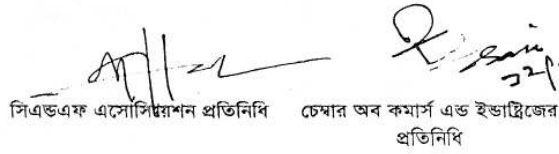 সিএন্ডএফ এসোসিয়েশন প্রতিনিধি চেম্বার অব কমার্স এন্ড ইন্ডাষ্ট্রিজের
প্রতিনিধি